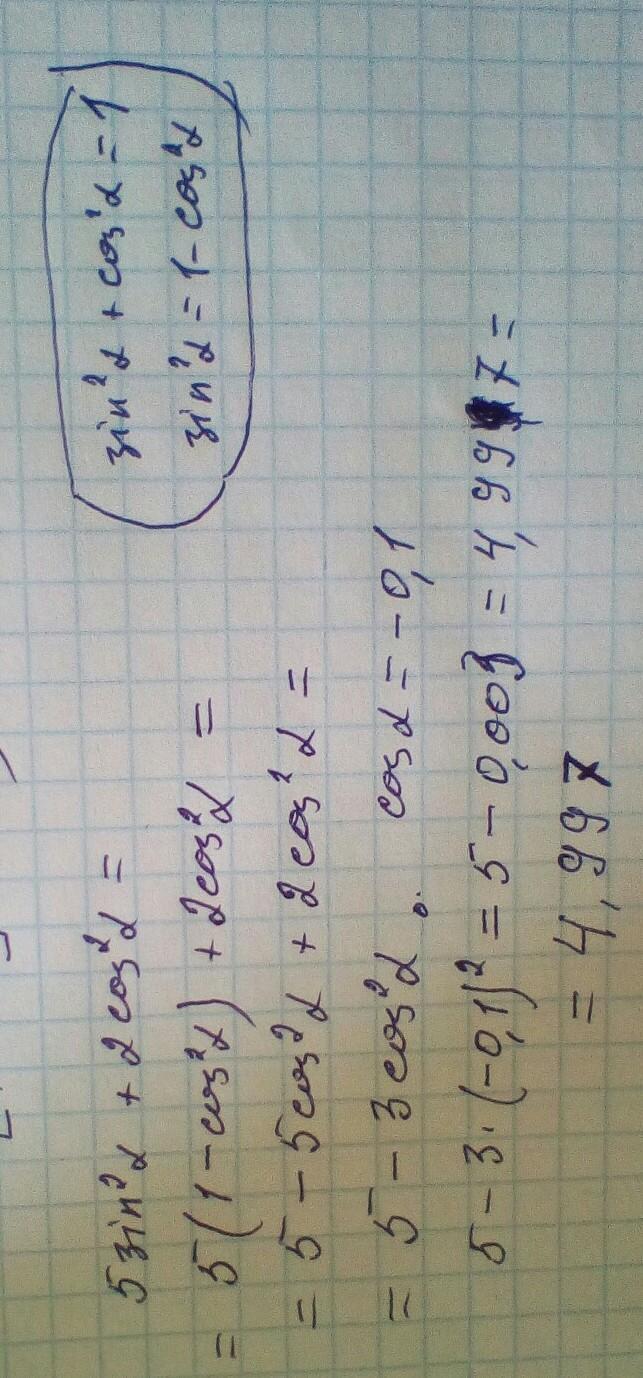 sin²α + cos²α = 1
sin²α = 1 - cos²α
5sin²α + 2cos²α =
= 5(1 - cos²α) + 2cos²α =
= 5 - 5cos²α + 2cos²α =
= 5 - 3cos²α . cosα = -0,1
5 - 3·(-0,1)² = 5 - 0,003 = 4,997 =
= 4,997